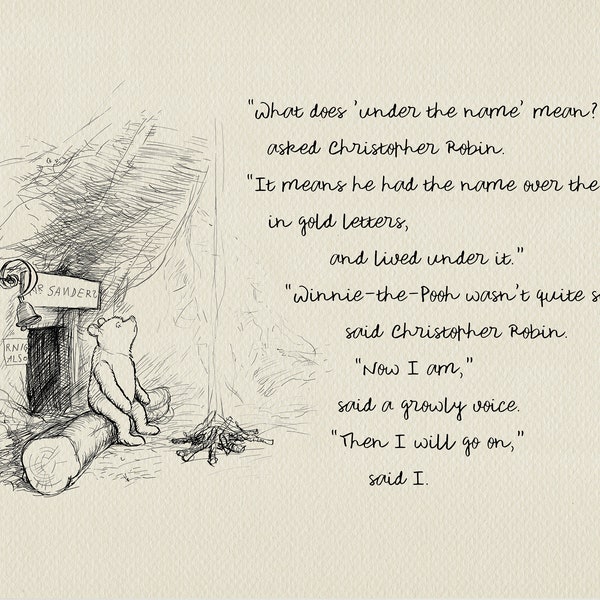 "What does 'under the name' mean?
asked Christopher Robin.
"It means he had the name over the
in gold letters,
and lived under it."
"Winnie-the-Pooh wasn't quite s
said Christopher Robin.
"Now I am,"
said a growly voice.
"Then I will go on,"
said I.
MR SANDERS
RNIG
ALSO